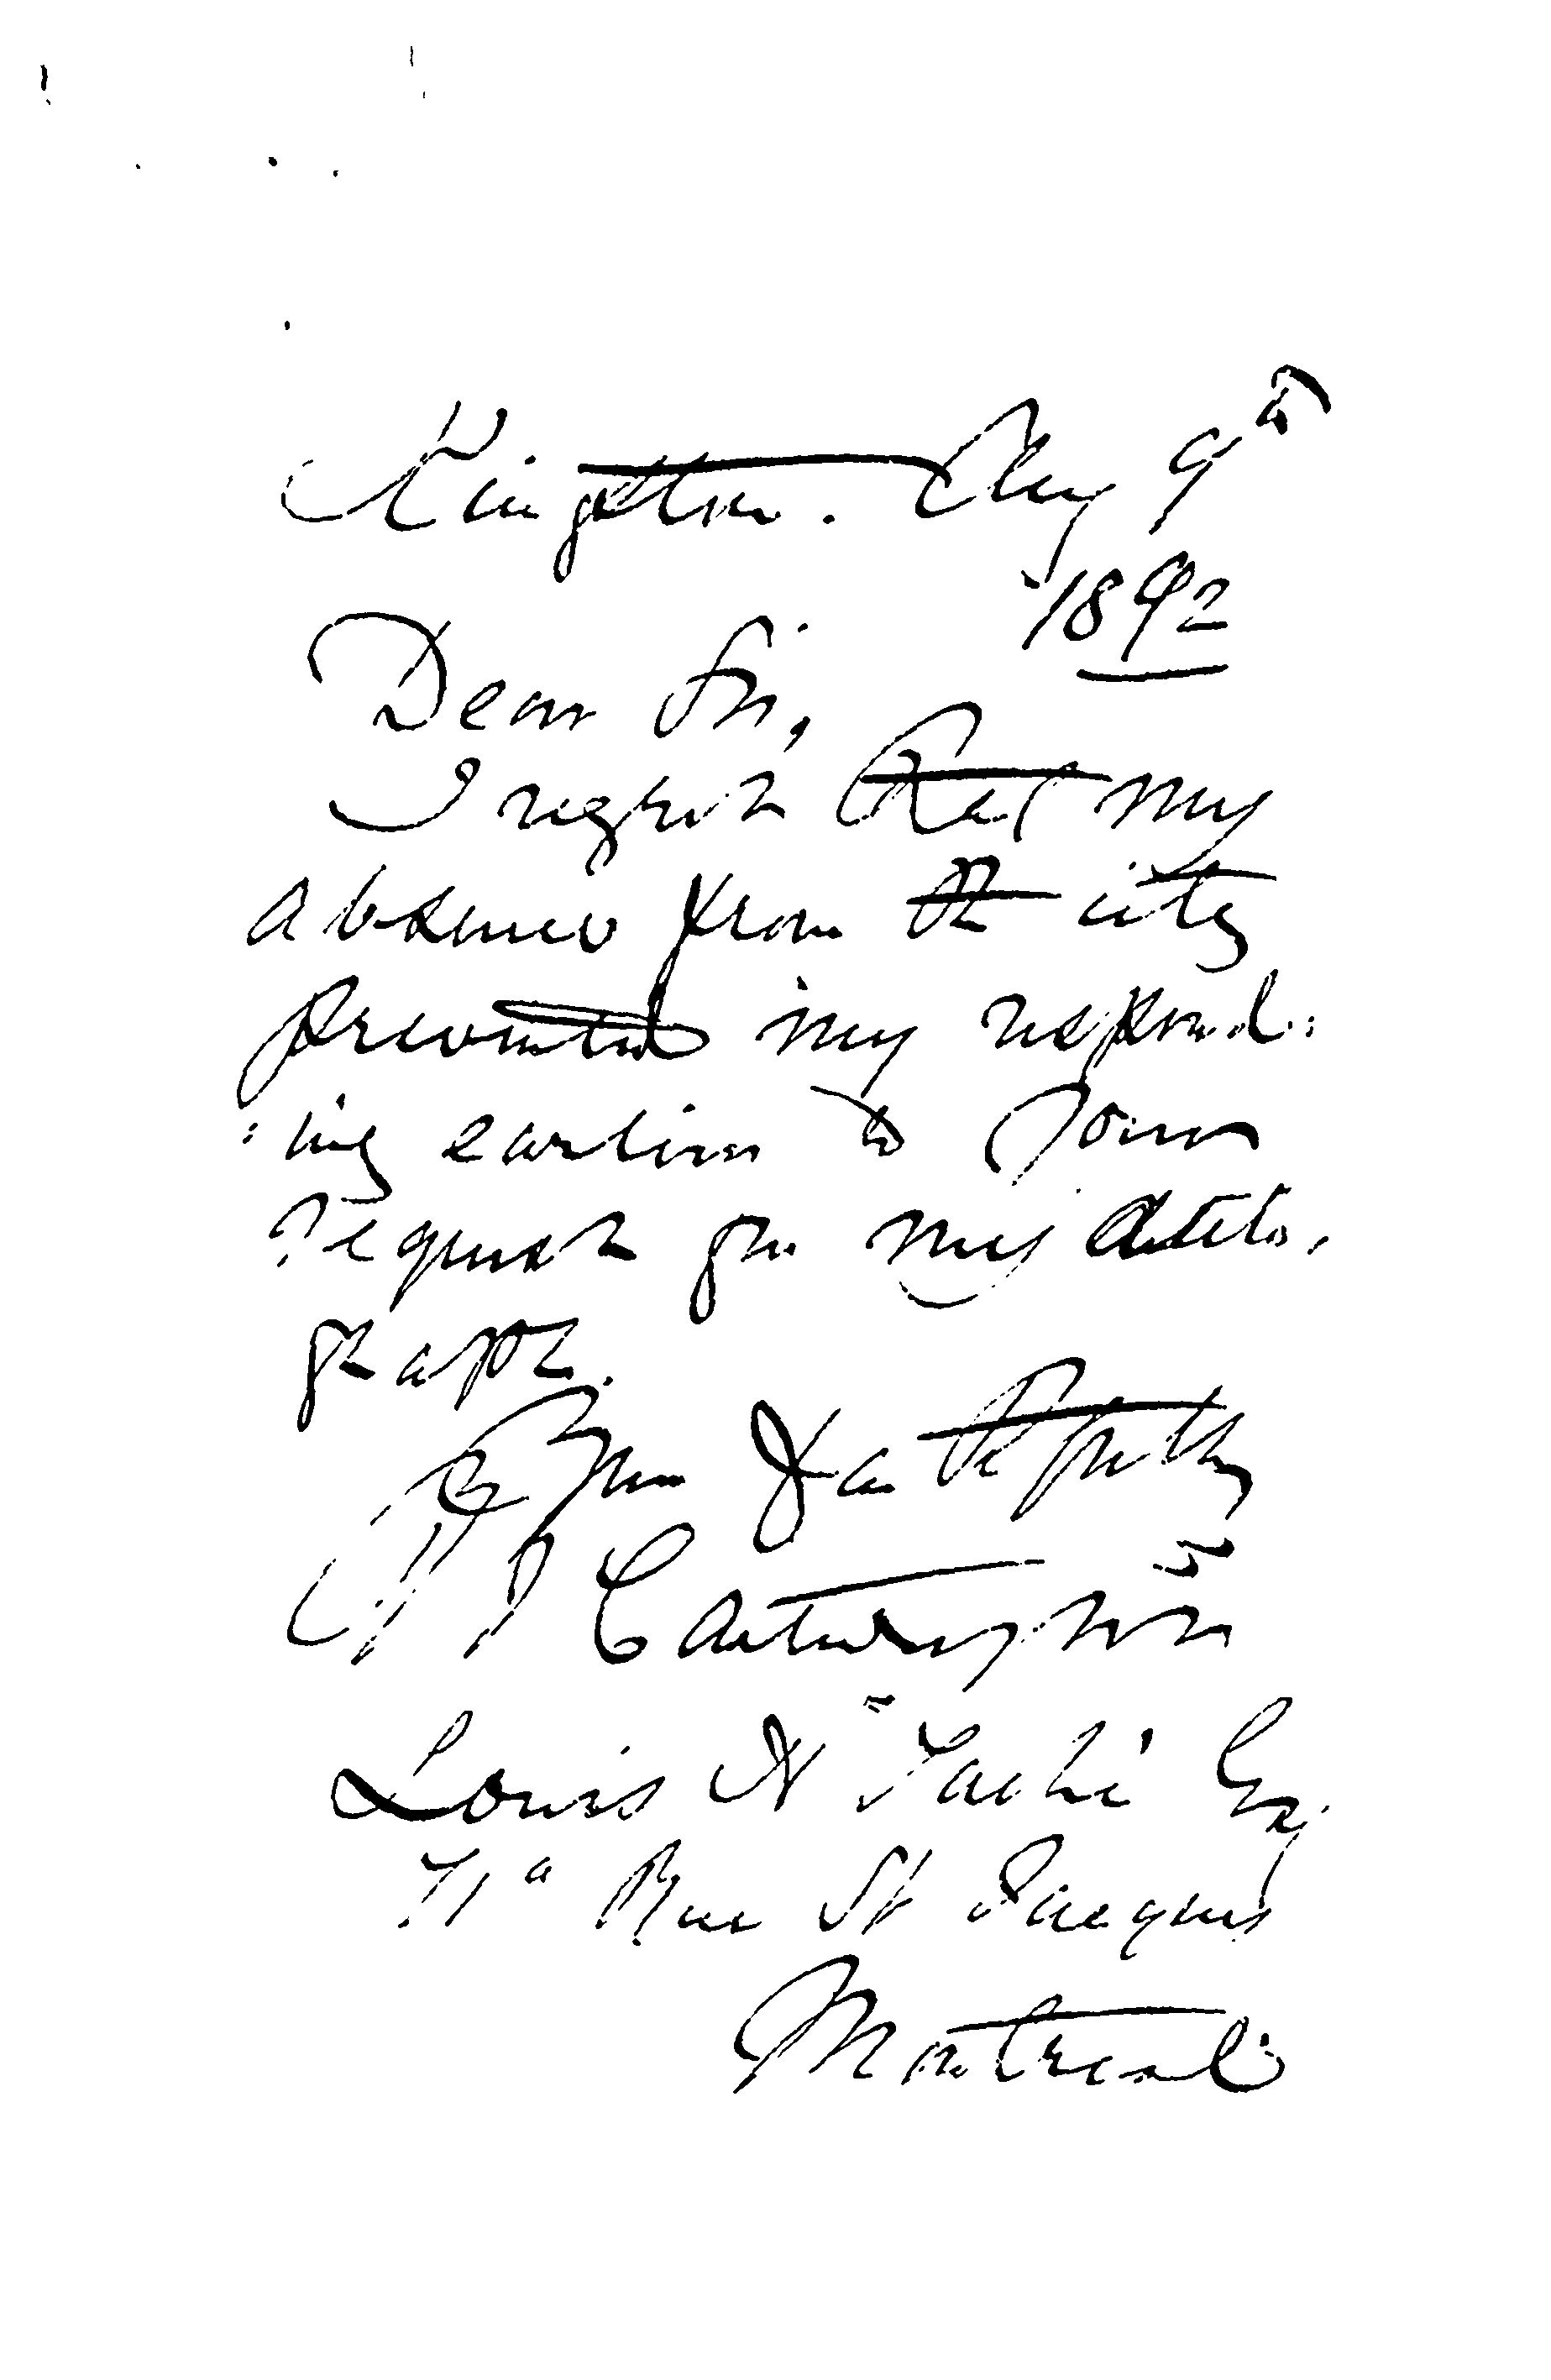 Kingston. Aug 9th
1892
Dear Sir,
I regret that my
absence from the city
prevented my respond:
:ing earlier to your
request for my auto,
graph.
Yours faithfully
R J Cartwright
Louis H Taché Esq
71a Rue St Jacques
Montreal